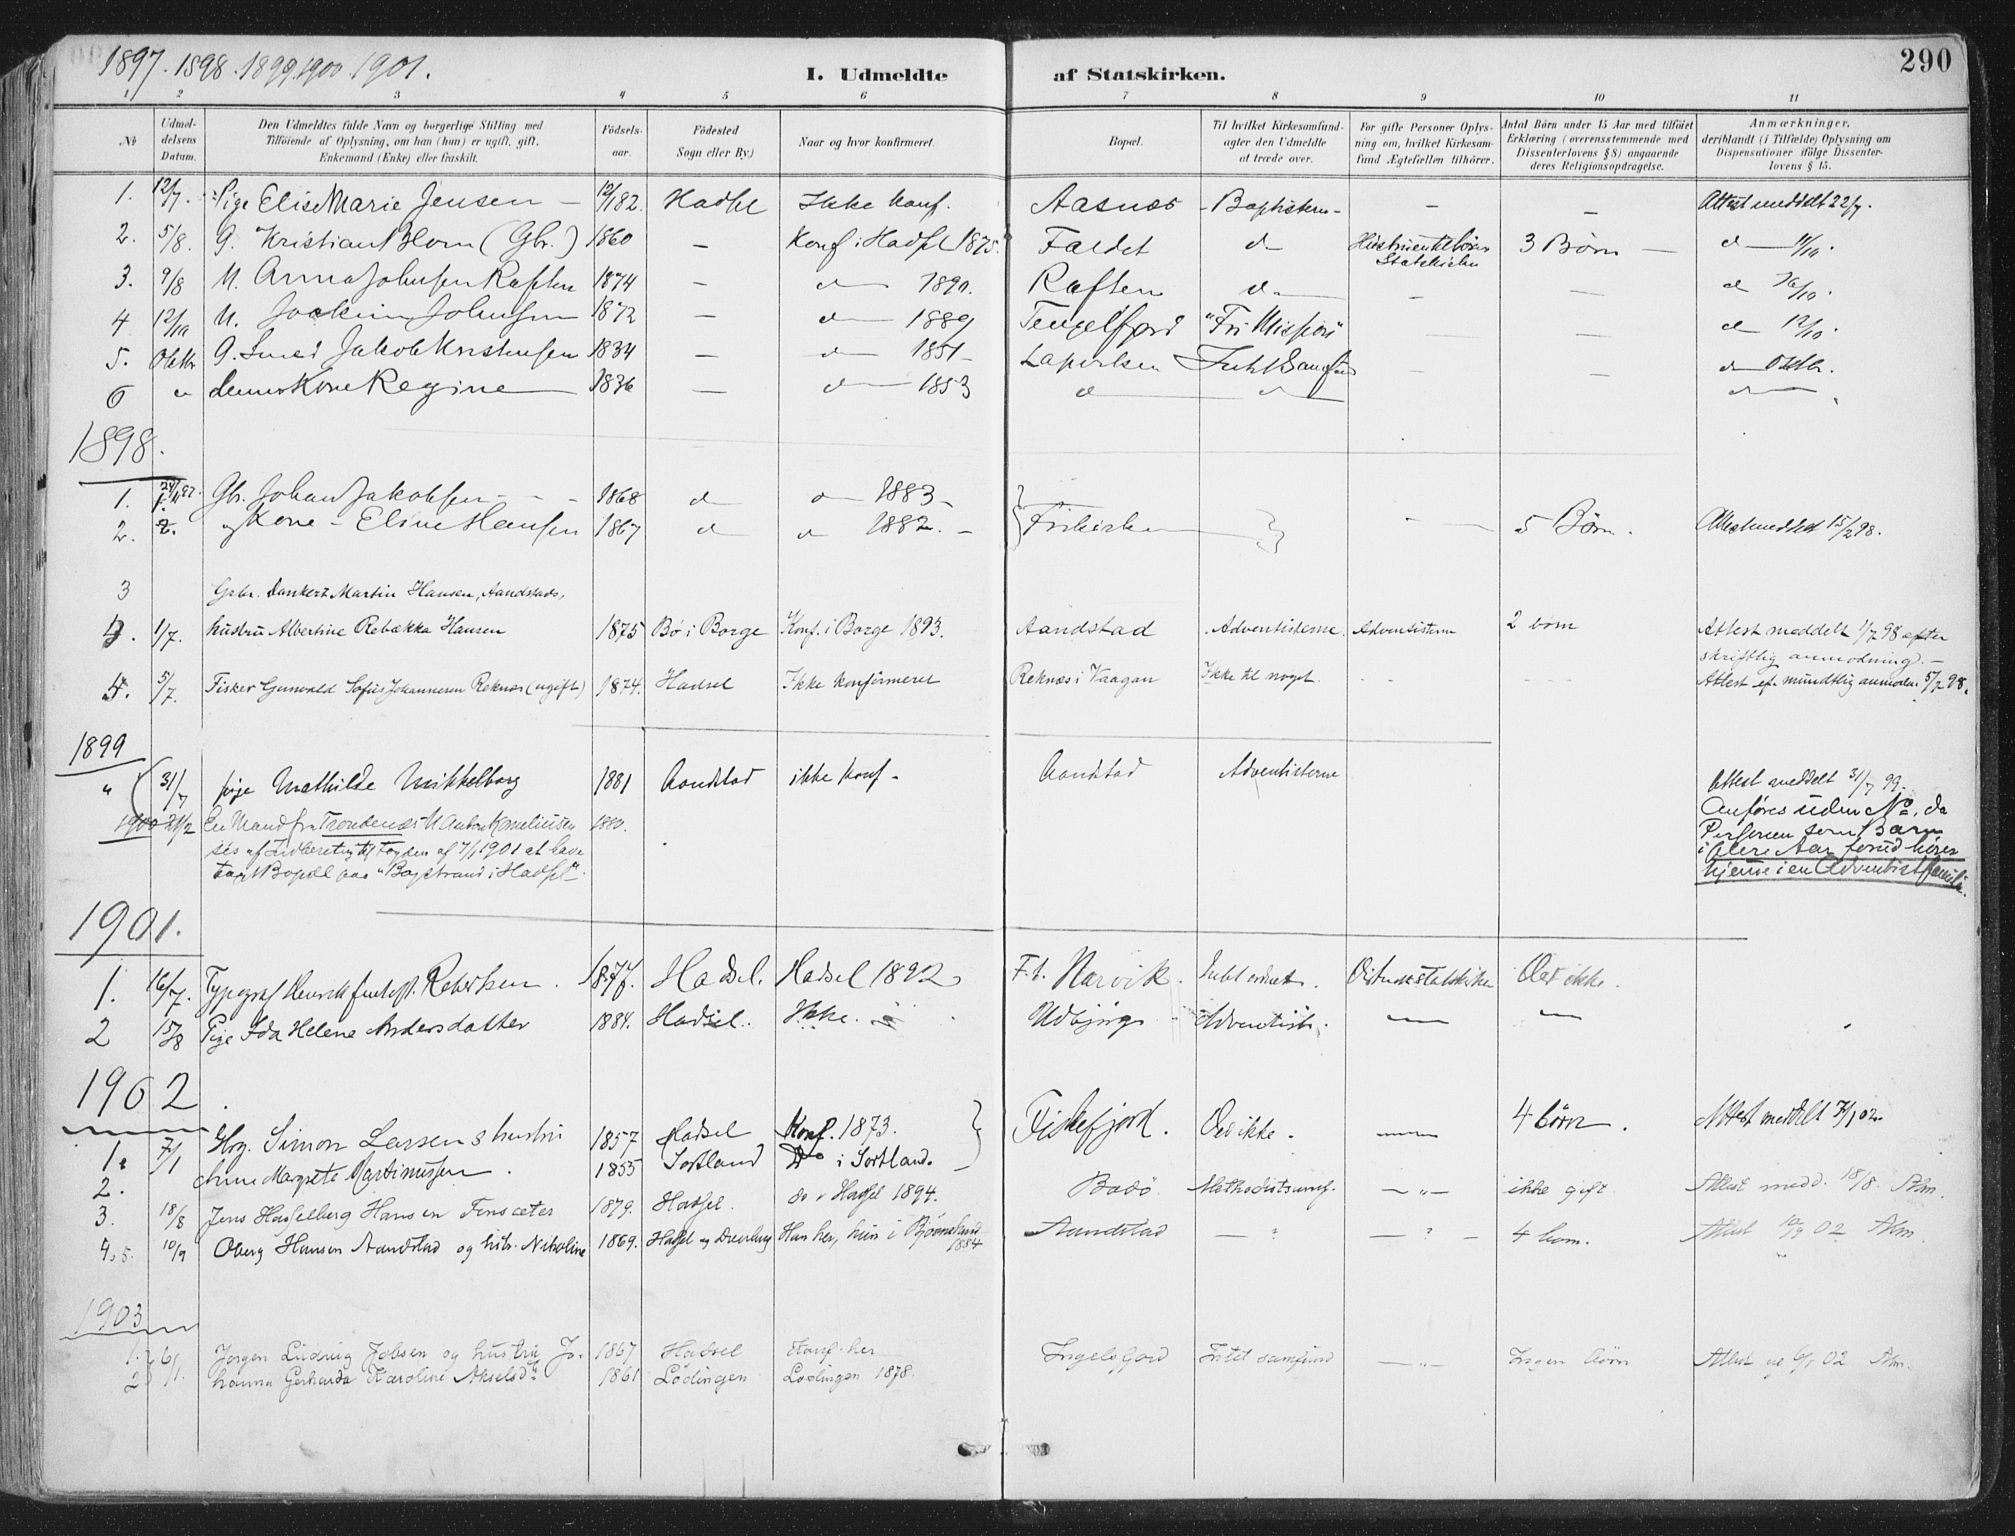 1897. 1898. 1899. 1900. 1901.
I. Udmeldte af Statskirken.
290
1 2 3 4 5 6 7 8 9 10 11
No
Udmeldelsens Datum.
Den Udmeldtes fulde Navn og borgerlige Stilling med Tilføiende af Oplysning, om han (hun) er ugift, gift, Enkemand (Enke) eller fraskilt.
Fødselsaar.
Fødested Sogn eller By.)
Naar og hvor konfirmeret.
Bopæl.
Til hvilket Kirkesamfund agter den Udmeldte at træde over.
For gifte Personer Oplysning om, hvilket Kirkesamfund Ægtefællen tilhører.
Antal Børn under 15 Aar med tilføiet Erklæring (overensstemmende med Dissenterlovens § 8) angaaende deres Religionsopdragelse.
Anmærkninger, deriblandt (i Tilfælde) Oplysning om Dispensationer ifølge Dissenterlovens § 15.
1. 12/7. Pige Elise Marie Jensen – 12/1 82. Hadsel Ikke konf. Aasnæs – Baptistern – – – Attest meddelt 22/7.
2. 5/8. G. Kristian Horn (Gbr.) 1860 – Konf. i Hadsel 1875. Faldet d 3 Børn – d – 4/10.
Statskirken
3. 9/8 U. Anna Johnsen Raften 1874 – d 1890. Raften d – – – d 16/10.
4 12/10 U. Joakim Johnsen 1872 – d 1889 Tengelfjord "Fri Mission" – – d 12/10
5. Oktbr G. Smed Jakob Kristensen 1834 – d – 1851 – – – d Oktbr.
6 d dennes Kone Regine 1836 – d – 1853 d d d
1898.
1. 24/11 97. Gbr. Johan Jakobsen – – – 1868 d d – 1883 –
2. og Kone – Eline Hansen 1867 d d 1882. – Frikirken – – 5 Børn. Attest meddelt 15/2 98.
3 Gbr. Dankert Martin Hansen, Aandstads,
4. 1/7. hustru Albertine Rebækka Hansen 1875 Bø i Borge Konf. i Borge 1893. Aandstad Adventisterne. Adventistern 2 børn Attest meddelt 1/7 98 efter
skriftlig anmodning. –
5. 5/7. Fisker Gunvald Sofus Johannesen Reknes (ugift) 1874. Hadsel Ikke konfirmeret Reknæs i Vaagan Ikke til noget. – – – Attest ef. mundtlig anmodn. 5/7 98.
1899
" 31/7 pige Mathilde Mikkelborg 1881 Aandstad ikke konf – Aandstad Adventisterne Attest meddelt 31/7 99.
Anføres uden No, da
1900 21/2 En Mand fra Trondenæs U Anton Korneliussen
Personen som Barn
ses af Indberetng til Fogden af 7/1 1901 at have
i flere Aar forud hører
taget Bopæl paa "Bogstrand i Hadsel".
hjemme i en Adventistfamilie.
1901.
1. 16/7. Typograf Henrik Robertsen. 1877. Hadsel. Hadsel 1892 F. t. Narvik. Statskirken Ved ikke.
2 15/8 Pige Ida Helene Andersdatter 1884. Hadsel. Ikke. Udbjørg Adventist. – –
1902.
1. 7/1 Hog. Simon Larsen & hustru 1857 Hadsel Konf. 1873. Fiskefjord. Ved ikke. – 4 börn. Attest meddelt 7/1 02
2. Anne Margrete Martinussen. 1855 Sortland Do i Sortland.
3. 18/8 Jens Hasselberg Hansen Finsæter 1879. Hadsel. do i Hadsel 1894. Bodö. Methodistsamf. – " – ikke gift. Attest medd. 18/8. Alm.
4, 5. 10/9 Oberg Hansen Aandstad og hstr. Nikoline 1869. Hadsel og Han her, hun i 1884 Aandstad – " – – " – 4 born. Attest 10/9 02 Alm.
1903
1. 6/1. Jørgen Ludvig Jobsen og hustru Jo- 1867 Hadsel Konf. her Ingelsfjord Intet samfund – " – Ingen börn Attest ug 6/1 02 Alm.
2 hanna Gerharda Karoline Akselsdtr 1861 Lödingen Lödingen 1878.